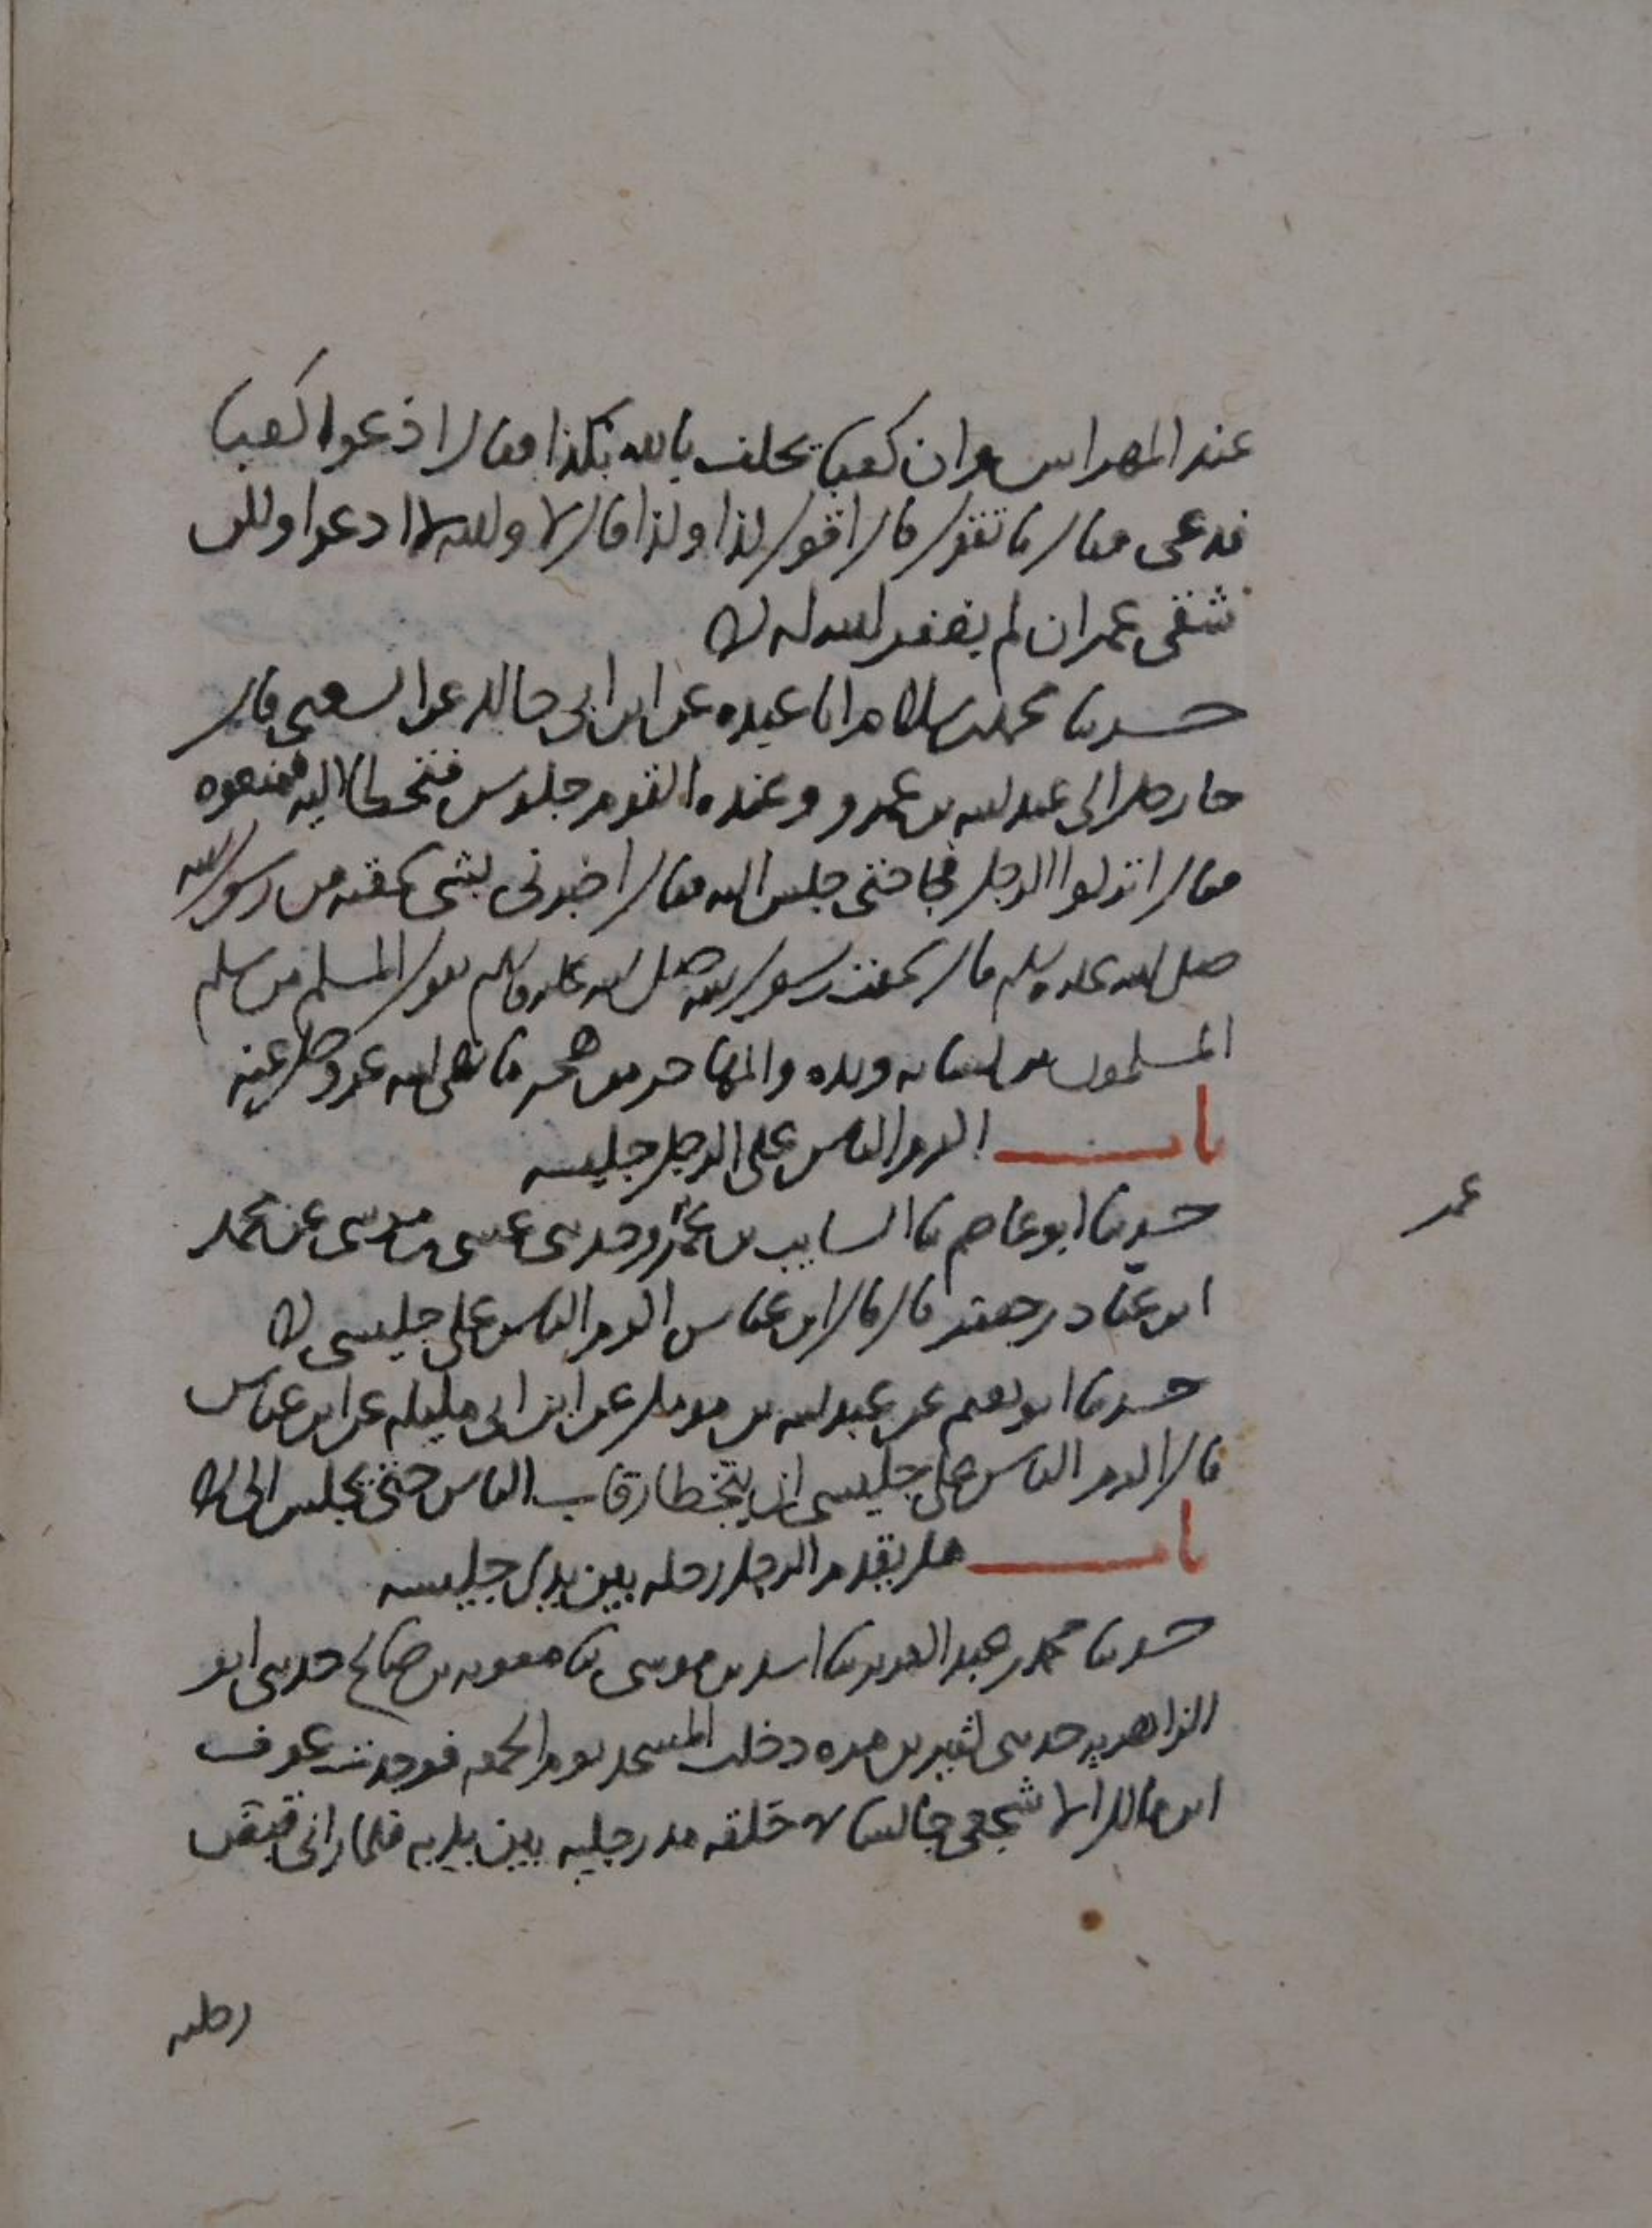 عند المهراس وان كعبا يحلف بالله بكذا فقال ادعوا كعبا
فدعي فقال ما تقول قال اقول كذا وكذا قال لا والله لا ادعوا ولكن
شقي عمر ان لم يغفر الله له
حدثنا محمد بن سلام انا عبده عن ابن ابي خالد عن الشعبي قال
جا رجل الى عبد الله بن عمرو وعنده القوم جلوس فتخطا اليه فمنعوه
فقال اتركوا الرجل فجا حتى جلس اليه فقال اخبرني بشي سمعته من رسول الله
صلى الله عليه وسلم قال سمعت رسول الله صلى الله عليه وسلم يقول المسلم من سلم
المسلمون من لسانه ويده والمهاجر من هجر ما نهى الله عز وجل عنه
باب اكرم الناس على الرجل جليسه
حدثنا ابو عاصم نا السايب بن عمر وحدثني عيسى بن موسى عن محمد
عمر
ابن عباد بن جعفر قال قال ابن عباس اكرم الناس علي جليسي
حدثنا ابو نعيم عن عبد الله بن مومل عن ابن ابي مليكه عن ابن عباس
قال اكرم الناس علي جليسي ان يتخطا رقاب الناس حتى يجلس الي
باب هل يقدم الرجل رجله بين يدي جليسه
حدثنا محمد بن عبد العزيز نا اسد بن موسى نا معويه بن صالح حدثني ابو
الزاهريه حدثني كثير بن مره دخلت المسجد يوم الجمعه فوجدت عوف
ابن مالك الاشجعي جالسا في حلقه مد رجليه بين يديه فلما راني قبض
رجليه